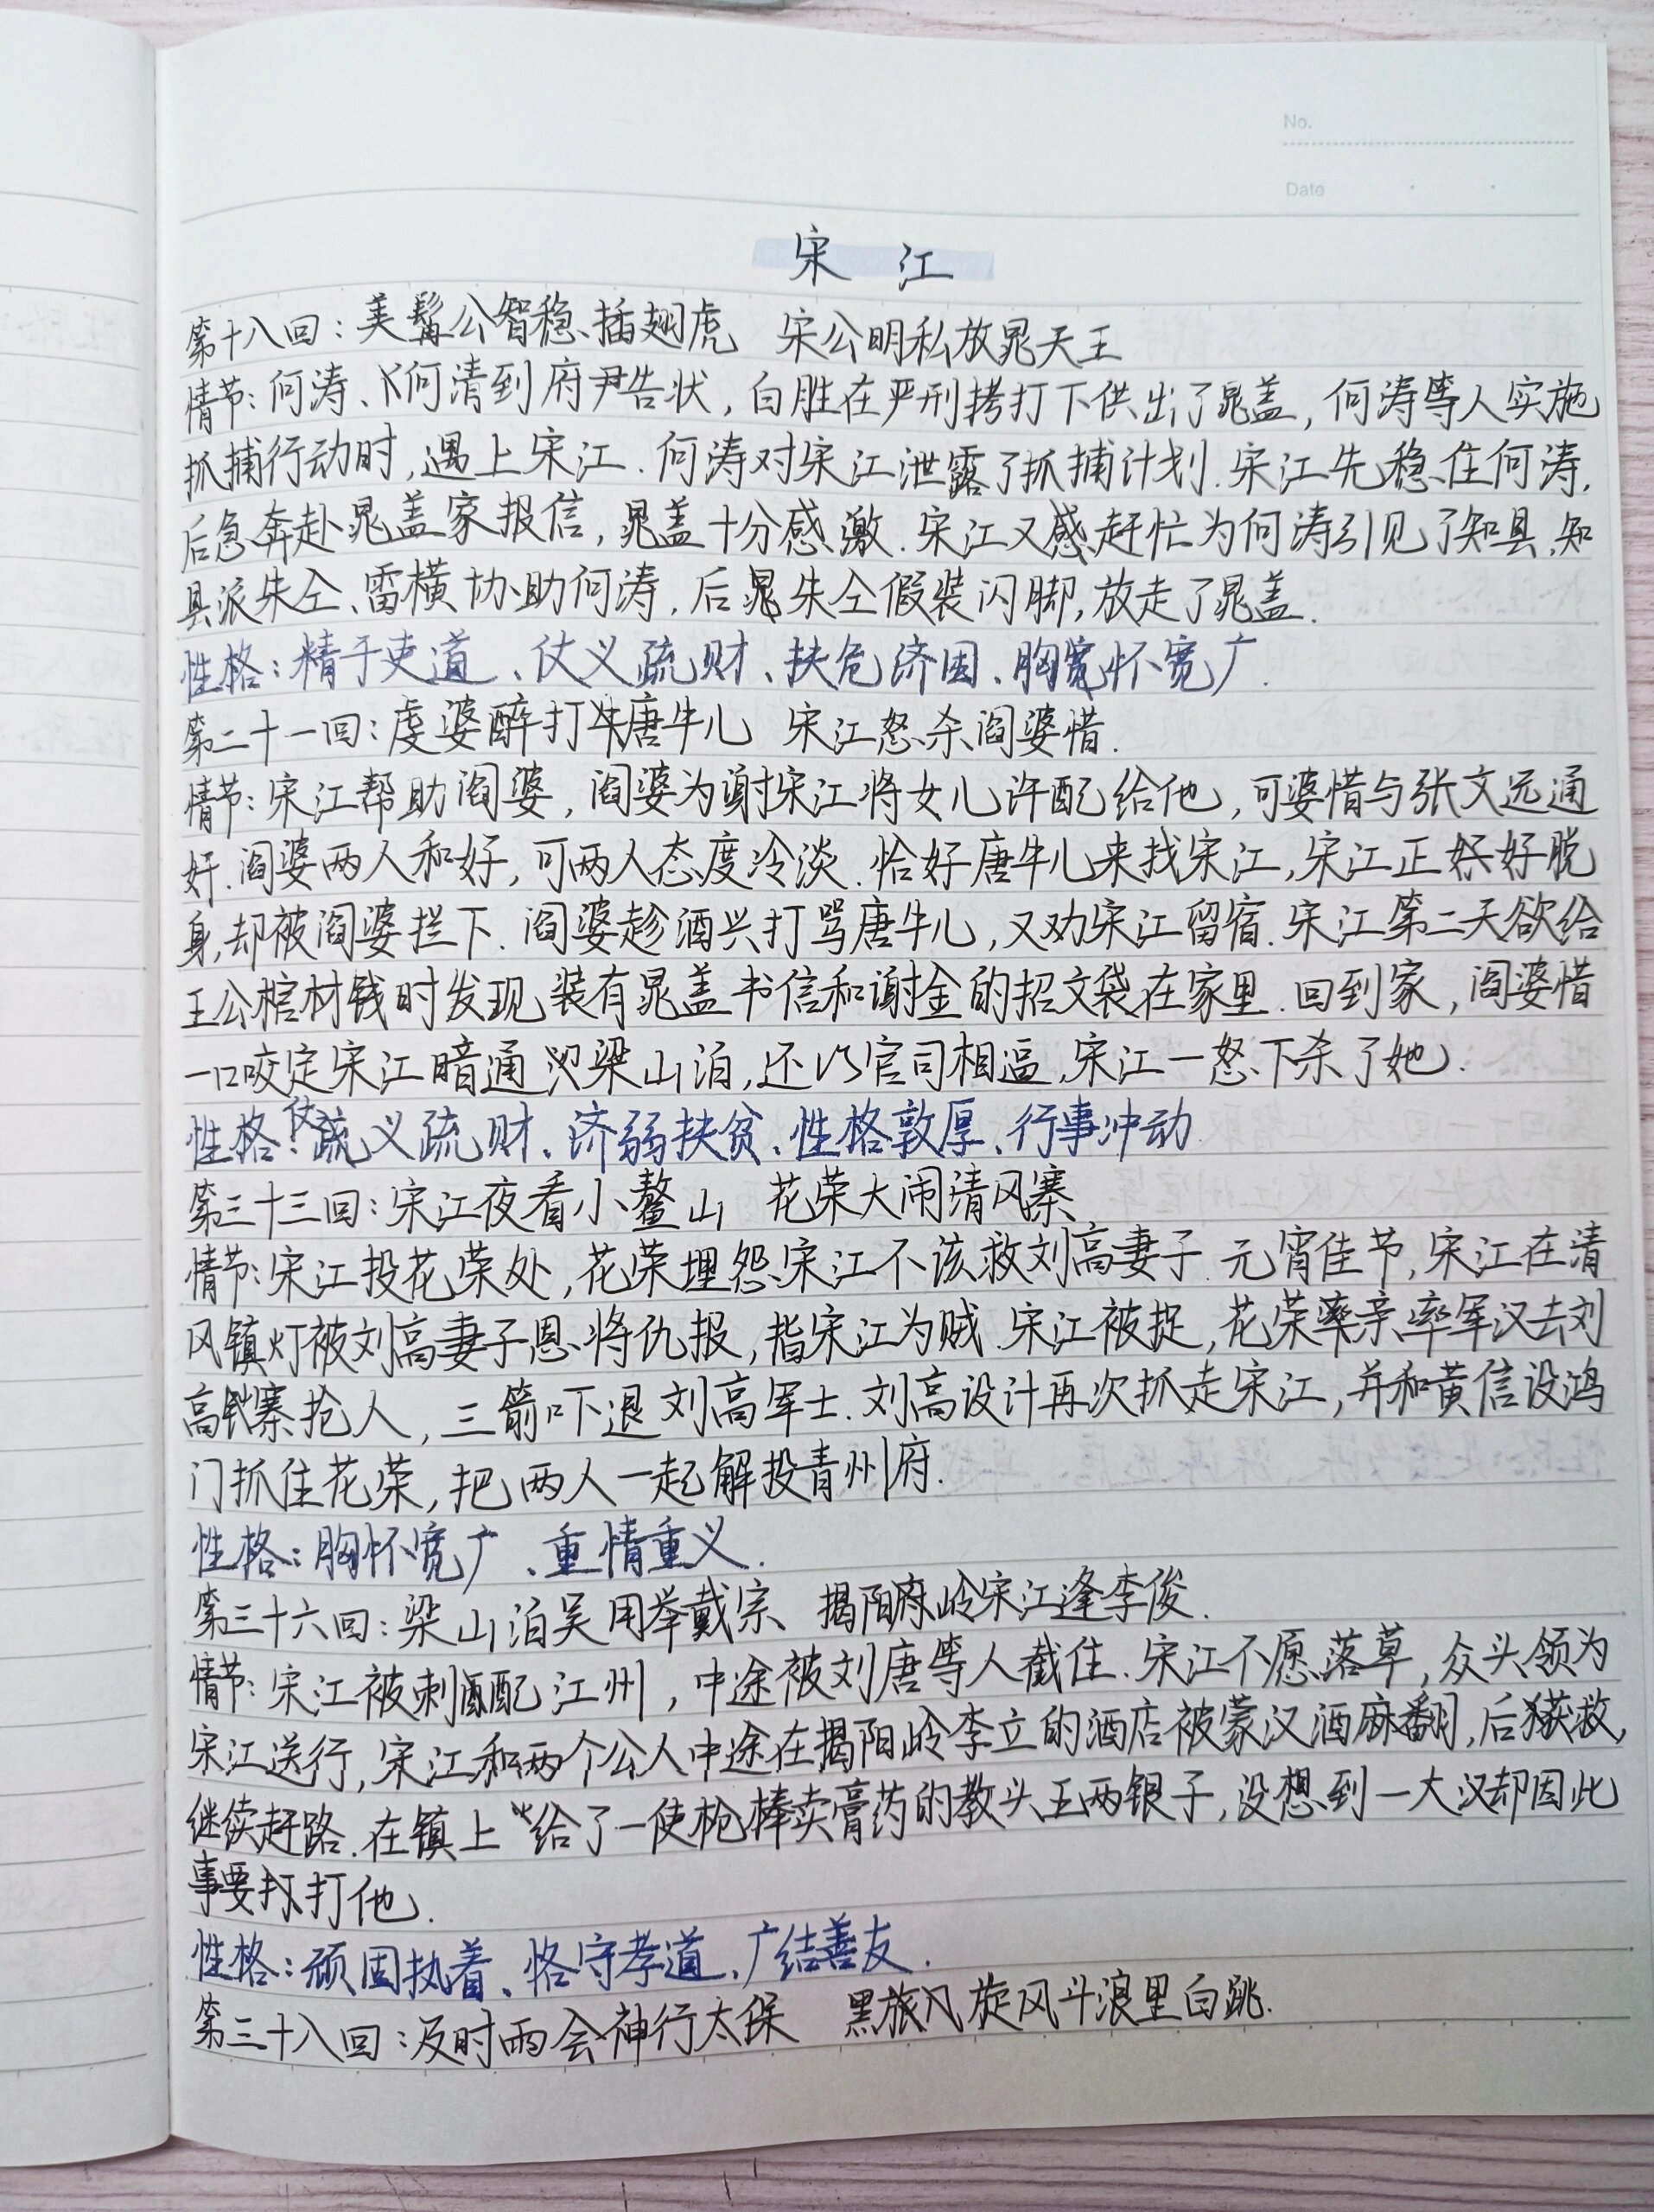 No.
Date
宋 江
第十八回：美髯公智稳插翅虎 宋公明私放晁天王
情节：何涛、何清到府尹告状，白胜在严刑拷打下供出了晁盖，何涛等人实施
抓捕行动时，遇上宋江.何涛对宋江泄露了抓捕计划.宋江先稳住何涛，
后急奔赴晁盖家报信，晁盖十分感激.宋江又赶忙为何涛引见了知县，知
县派朱仝、雷横协助何涛，后朱仝假装闪脚，放走了晁盖.
性格：精于吏道、仗义疏财、扶危济困、胸怀宽广.
第二十一回：虔婆醉打唐牛儿 宋江怒杀阎婆惜.
情节：宋江帮助阎婆，阎婆为谢宋江将女儿许配给他，可婆惜与张文远通
奸.阎婆两人和好，可两人态度冷淡.恰好唐牛儿来找宋江，宋江正好脱
身，却被阎婆拦下.阎婆趁酒兴打骂唐牛儿，又劝宋江留宿.宋江第二天欲给
王公棺材钱时发现装有晁盖书信和谢金的招文袋在家里.回到家，阎婆惜
一口咬定宋江暗通梁山泊，还以官司相逼，宋江一怒下杀了她.
性格：仗义疏财、济弱扶贫、性格敦厚、行事冲动.
第三十三回：宋江夜看小鳌山 花荣大闹清风寨
情节：宋江投花荣处，花荣埋怨宋江不该救刘高妻子.元宵佳节，宋江在清
风镇灯被刘高妻子恩将仇报，指宋江为贼.宋江被捉，花荣亲率军汉去刘
高寨抢人，三箭吓退刘高军士.刘高设计再次抓走宋江，并和黄信设鸿
门抓住花荣，把两人一起解投青州府.
性格：胸怀宽广、重情重义.
第三十六回：梁山泊吴用举戴宗 揭阳岭宋江逢李俊.
情节：宋江被刺配江州，中途被刘唐等人截住.宋江不愿落草，众头领为
宋江送行，宋江和两个公人中途在揭阳岭李立的酒店被蒙汉酒麻翻，后获救，
继续赶路.在镇上给了一使枪棒卖膏药的教头五两银子，没想到一大汉却因此
事要打他.
性格：顽固执着、恪守孝道、广结善友.
第三十八回：及时雨会神行太保 黑旋风斗浪里白跳.